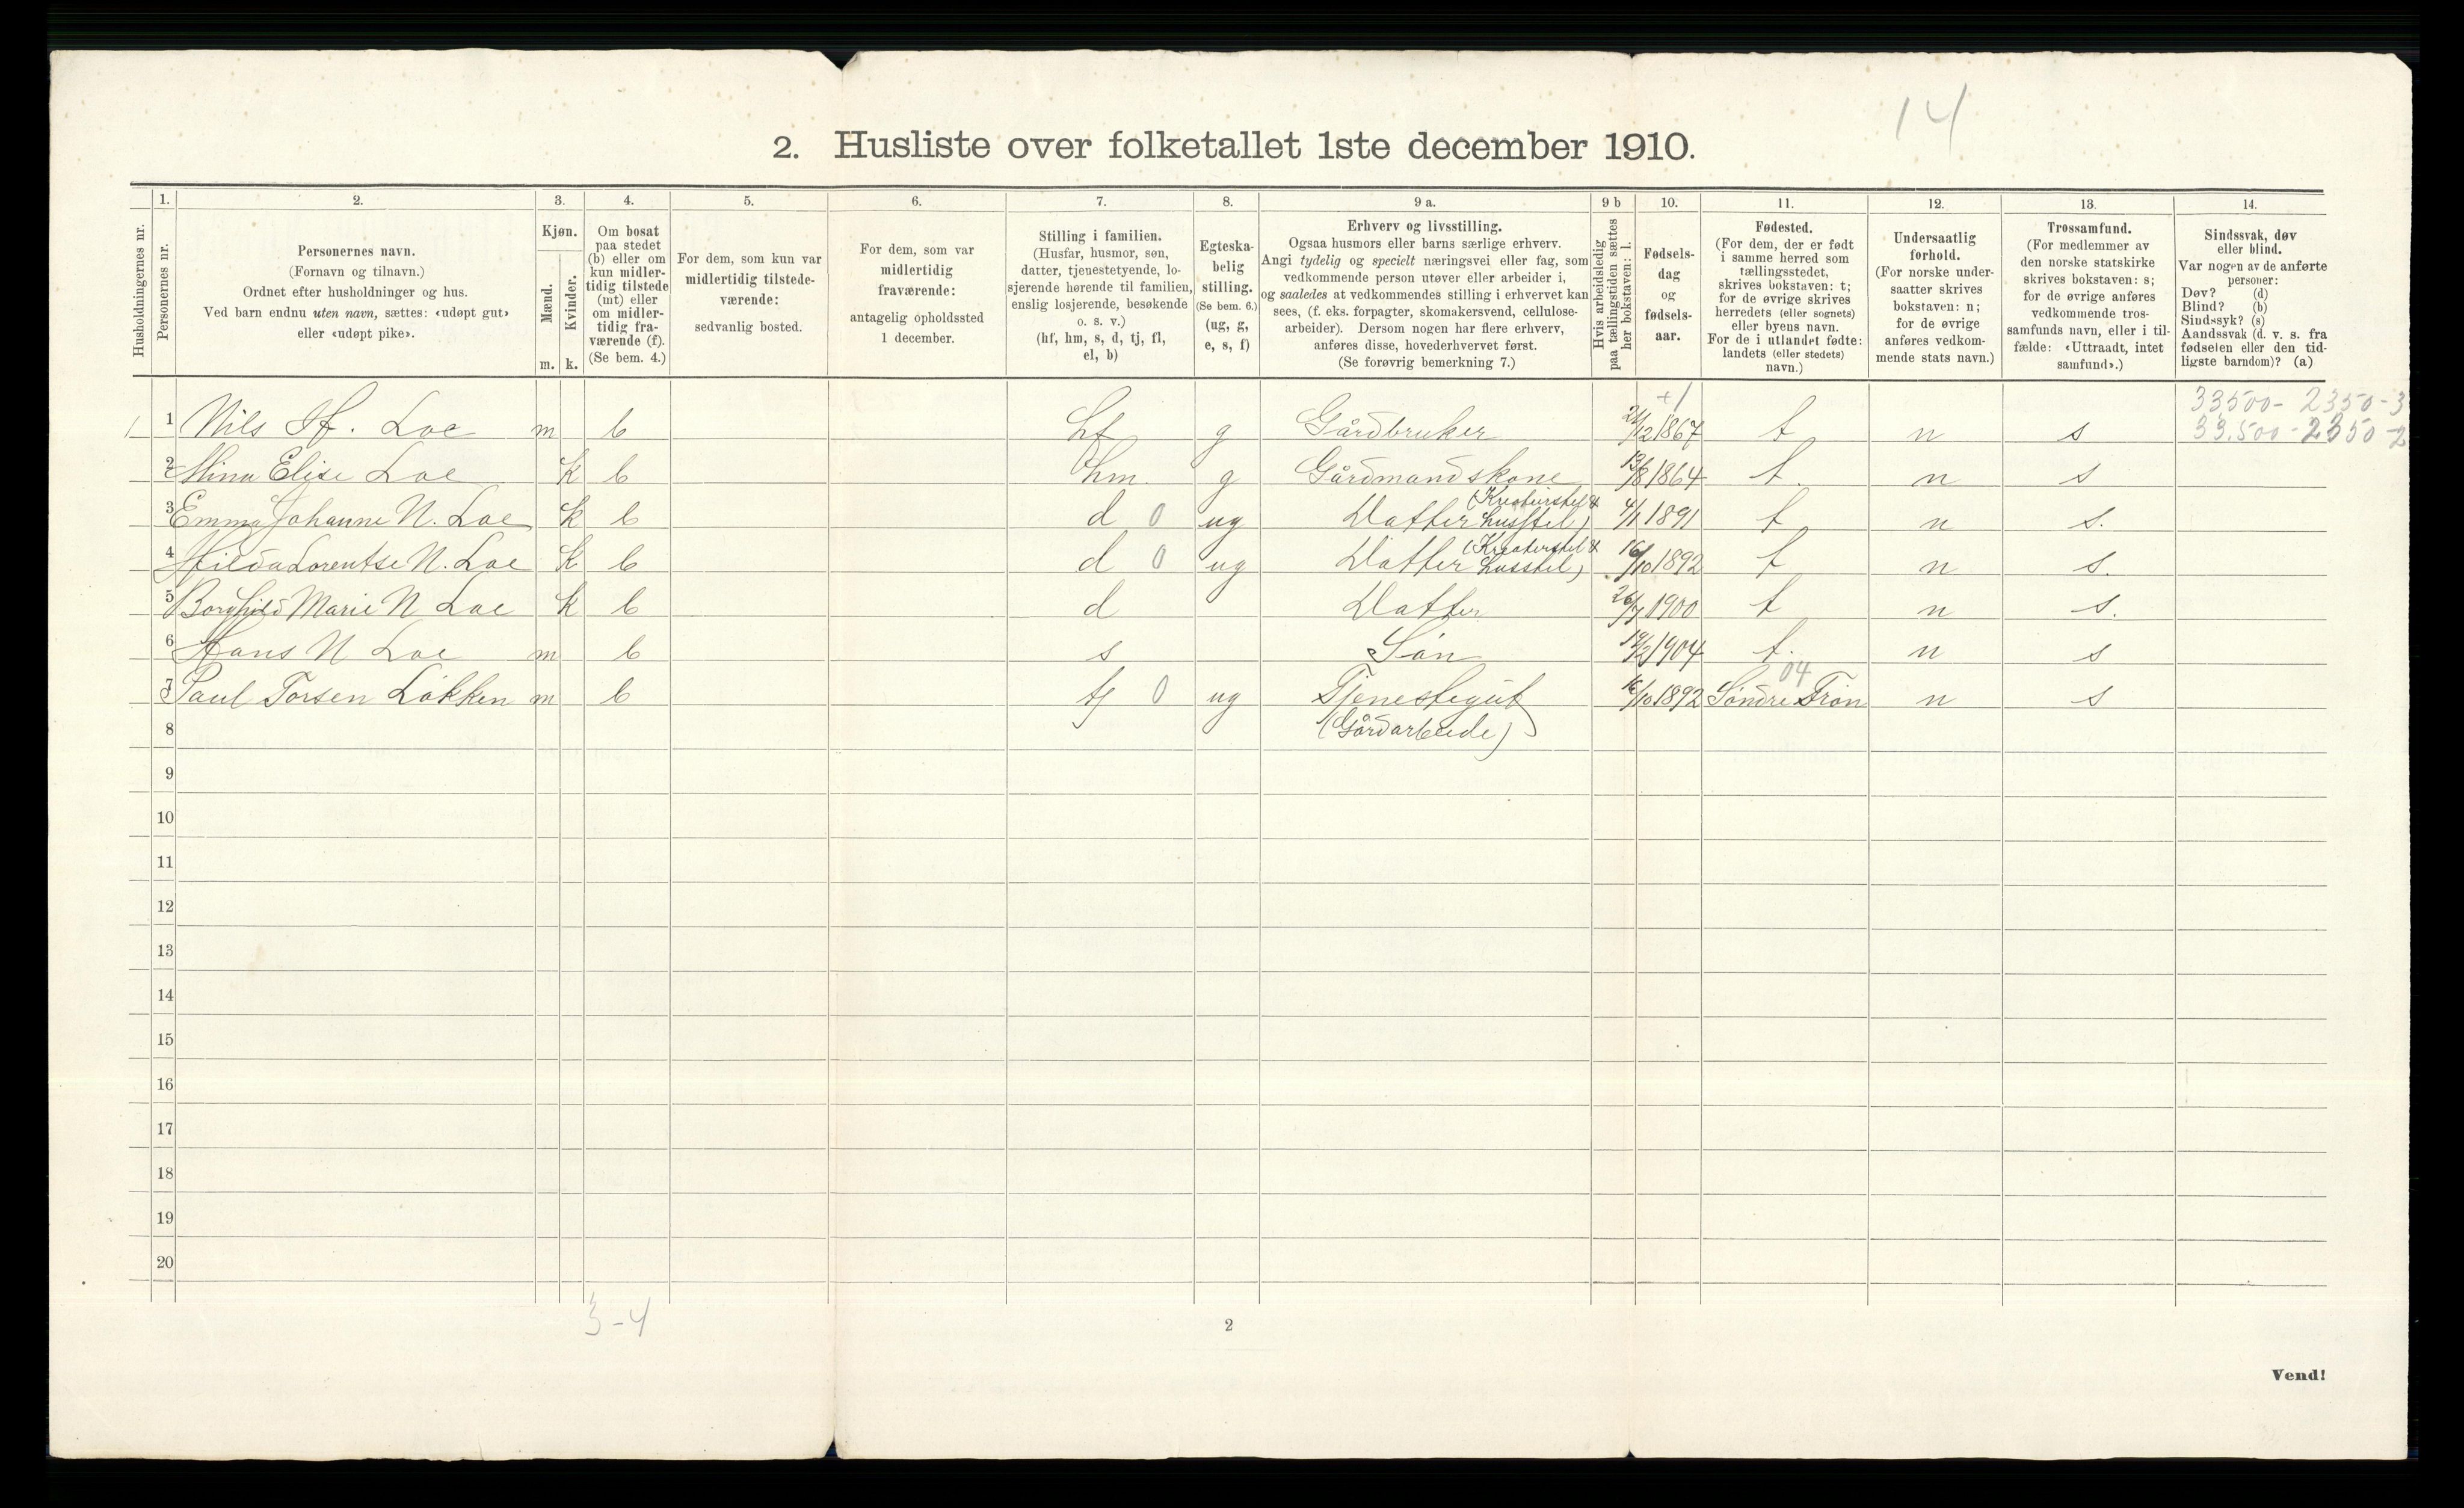 14
2. Husliste over folketallet 1ste december 1910.
1. 2. 3. 4. 5. 6. 7. 8. 9 a. 9 b 10. 11. 12. 13. 14.
Husholdningernes nr.
Personernes nr.
Personernes navn.
(Fornavn og tilnavn.)
Ordnet efter husholdninger og hus.
Ved barn endnu uten navn, sættes: «udøpt gut»
eller «udøpt pike».
Kjøn.
Mænd.
m.
Kvinder.
k.
Om bosat
paa stedet
(b) eller om
kun midler-
tidig tilstede
(mt) eller
om midler-
tidig fra-
værende (f).
(Se bem. 4.)
For dem, som kun var
midlertidig tilstede-
værende:
sedvanlig bosted.
For dem, som var
midlertidig
fraværende:
antagelig opholdssted
1 december.
Stilling i familien.
(Husfar, husmor, søn,
datter, tjenestetyende, lo-
sjerende hørende til familien,
enslig losjerende, besøkende
o. s. v.)
(hf, hm, s, d, tj, fl,
el, b)
Egteska-
belig
stilling.
(Se bem. 6.)
(ug, g,
e, s, f)
Erhverv og livsstilling.
Ogsaa husmors eller barns særlige erhverv.
Angi tydelig og specielt næringsvei eller fag, som
vedkommende person utøver eller arbeider i,
og saaledes at vedkommendes stilling i erhvervet kan
sees, (f. eks. forpagter, skomakersvend, cellulose-
arbeider). Dersom nogen har flere erhverv,
anføres disse, hovederhvervet først.
(Se forøvrig bemerkning 7.)
Hvis arbeidsledig
paa tællingstiden sættes
her bokstaven: l.
Fødsels-
dag
og
fødsels-
aar.
Fødested.
(For dem, der er født
i samme herred som
tællingsstedet,
skrives bokstaven: t;
for de øvrige skrives
herredets (eller sognets)
eller byens navn.
For de i utlandet fødte:
landets (eller stedets)
navn.)
Undersaatlig
forhold.
(For norske under-
saatter skrives
bokstaven: n;
for de øvrige
anføres vedkom-
mende stats navn.)
Trossamfund.
(For medlemmer av
den norske statskirke
skrives bokstaven: s;
for de øvrige anføres
vedkommende tros-
samfunds navn, eller i til-
fælde: «Uttraadt, intet
samfund».)
Sindssvak, døv
eller blind.
Var nogen av de anførte
personer:
Døv? (d)
Blind? (b)
Sindssyk? (s)
Aandssvak (d. v. s. fra
fødselen eller den tid-
ligste barndom)? (a)
+1 33500- 2350-3
1 1 Nils H. Loe m b hf g Gårdbruker 21/12 1867 t n s 33.500-2350-2
2 Mina Elise Loe k b hm g Gårdmandskone 13/8 1864 t. n s
3 Emma Johanne N. Loe k b d 0 ug Datter (Kreaturstel & husstel) 4/1 1891 t n s.
4 Hilda Lorentse N. Loe k b d 0 ug Datter (Kreaturstel & husstel) 16/10 1892 t n s.
5 Borghild Marie N Loe k b d Datter 26/7 1900 t n s.
6 Hans N Loe m b s Søn 19/2 1904 t. n s
04
7 Paul Torsen Løkken m b tj 0 ug Tjenestegut 16/10 1892 Søndre Frøn n s
8 (Gårdarbeide)
9
10
11
12
13
14
15
16
17
18
19
20
3-4
2
Vend!